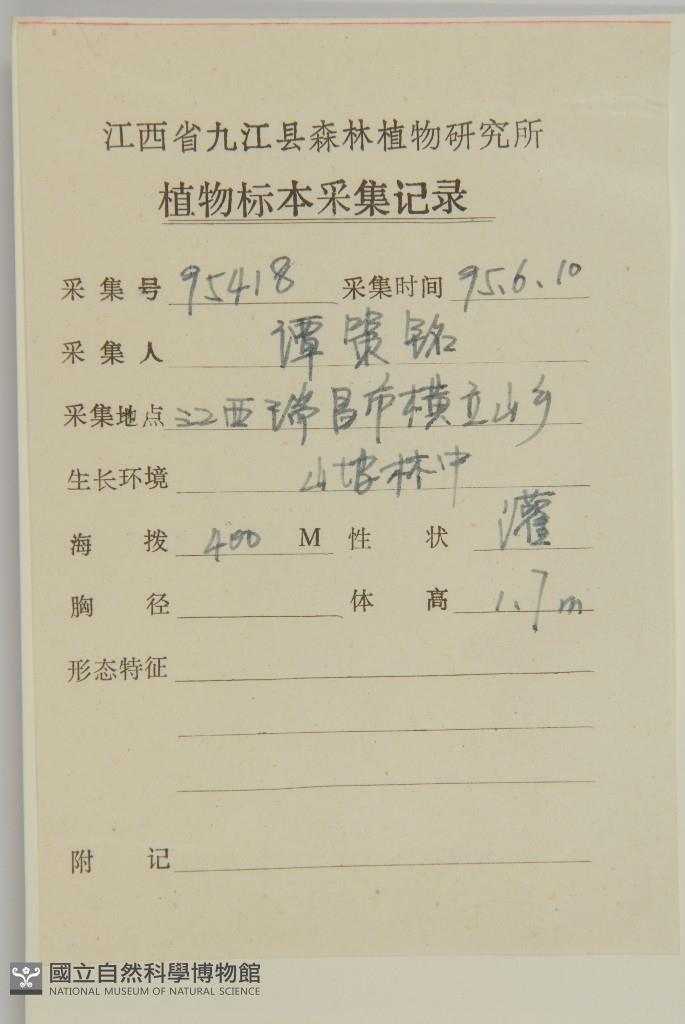 江西省九江县森林植物研究所
植物标本采集记录
采集号 95418 采集时间 95.6.10
采集人 谭策铭
采集地点 江西瑞昌市横立山乡
生长环境 山坡林中
海拨 400 M 性状 灌
胸径 体高 1.7m
形态特征
附记
國立自然科學博物館
NATIONAL MUSEUM OF NATURAL SCIENCE